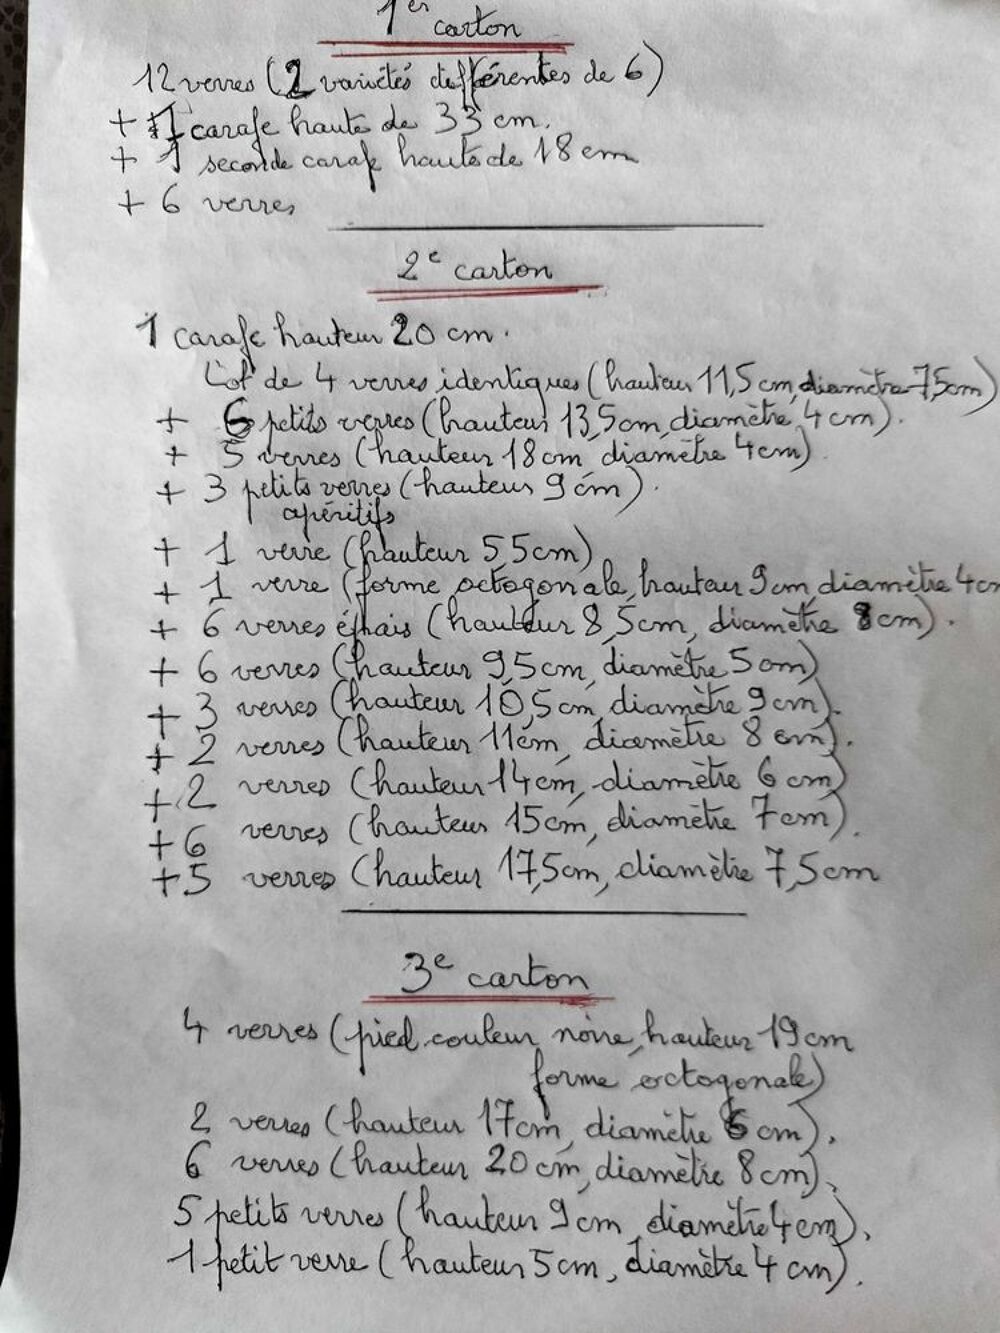 1er carton
12 verres (2 variétés différentes de 6)
+ 1 carafe haute de 33 cm.
+ 1 seconde carafe haute de 18 cm
+ 6 verres
2e carton
1 carafe hauteur 20 cm.
Lot de 4 verres identiques (hauteur 11,5 cm, diamètre 7,5cm)
+ 6 petits verres (hauteur 13,5cm, diamètre 4cm).
+ 5 verres (hauteur 18cm, diamètre 4cm).
+ 3 petits verres (hauteur 9 cm).
apéritifs
+ 1 verre (hauteur 5,5cm)
+ 1 verre (forme octogonale, hauteur 9cm, diamètre 4cm
+ 6 verres épais (hauteur 8,5cm, diamètre 8cm).
+ 6 verres (hauteur 9,5cm, diamètre 5cm)
+ 3 verres (hauteur 10,5cm, diamètre 9cm).
+ 2 verres (hauteur 11cm, diamètre 8cm).
+ 2 verres (hauteur 14cm, diamètre 6cm)
+ 6 verres (hauteur 15cm, diamètre 7cm).
+ 5 verres (hauteur 17,5cm, diamètre 7,5cm
3e carton
4 verres (pied couleur noire, hauteur 19cm
forme octogonale)
2 verres (hauteur 17cm, diamètre 6cm).
6 verres (hauteur 20cm, diamètre 8cm).
5 petits verres (hauteur 9cm, diamètre 4cm).
1 petit verre (hauteur 5cm, diamètre 4cm).